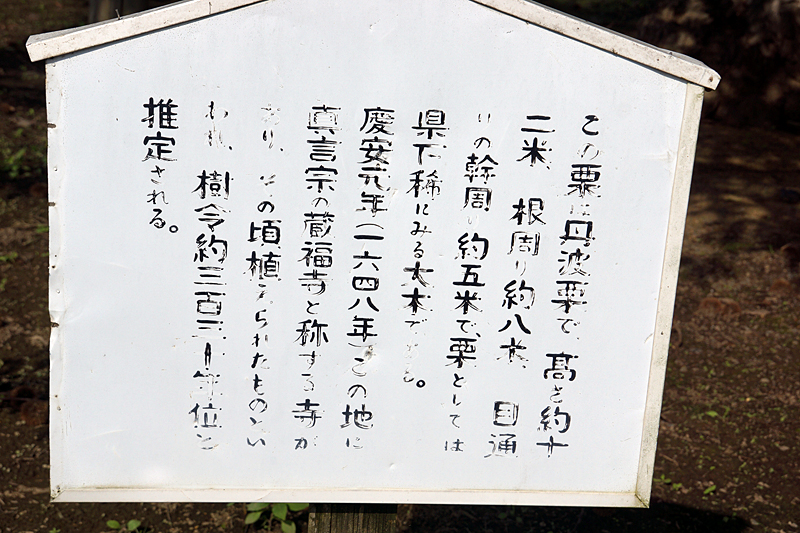 この栗は丹波栗で、高さ約十
二米、根周り約八米、目通
りの幹周り約五米で、栗としては
県下稀にみる大木である。
慶安元年(一六四八年)この地に
真言宗の蔵福寺と称する寺が
あり、その頃植えられたものとい
われ、樹令約三百三十年位と
推定される。